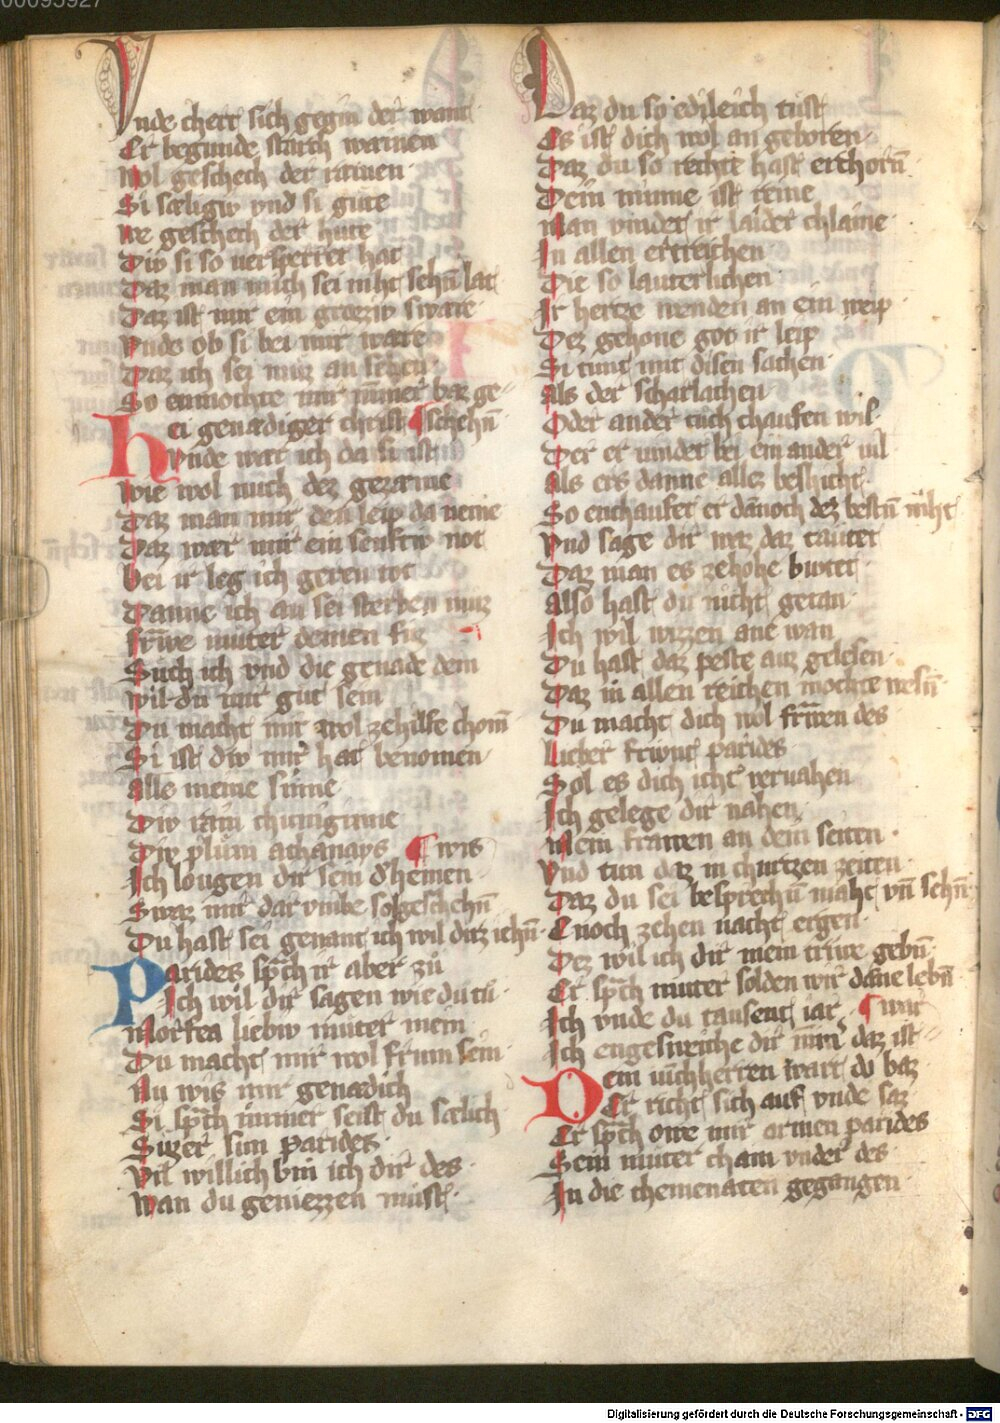 00095927
Vnde chert sich gegin der want
Er begunde starch weinen
Wol geschech der rainen
Si sæligiv vnd si gute
We geschech der hute
Div si so versperret hat
Daz man mich sei niht sehn̄ lat
Daz ist mir ein grozziv swære
Vnde ob si bei mir wære
Daz ich sei muz an sehen
So enmochte mir nim̄er baz ge¬
Hei genædiger christ ¶ schehn̄
Vnde wær ich da si ist
Wie wol mich dez gezæme
Daz man mir den leip da neme
Daz wær mir ein senftiv not
bei ir leg ich geren tot
Danne ich an sei sterben muz
frawe muter deinen fuz
Such ich vnd die genade dein
wil du mir gut sein
Du macht mir wol zehilfe chom̄
Si ist div mir hat benomen
alle meine sinne
Div rain chuniginne
Div plum athanays ¶ wis
Ich lougen dir sein dheinen
Swaz mir dar vmbe sol geschehn̄
Du hast sei genant ich wil ditz iehn̄
Parides sp̄ch ir aber zu
Ich wil dir sagen wie du tu
Morfea liebiv muter mein
Du macht mir wol frum sein
Nu wis mir genadich
Si sp̄ch immer seist du sælich
Suzer sun parides
Vil willich bin ich dir des
Wan du geniezzen must
Daz du so edileich tust
Es ist dich wol an geboren
Daz du so rechte hast erchorn̄
Dein minne ist reine
Man vindet ir laider chlaine
In allen ertreichen
Die so lauterlichen
Ir hertze wenden an ein weip
Dez gehone got ir leip
Si tunt mit disen sachen
als der scharlachen
Oder ander tuch chaufen wil
Der er vindet bei ein ander vil
als ers danne allez besicht
So enchaufet er dānoch dez bestn̄ niht
Vnd sage dir waz daz tautet
Daz man es zehohe biutet
also hast du nicht getan
Ich wil wizzen ane wan
Du hast daz peste auz gelesen
Daz in allen reichen mochte wesn̄
Du macht dich wol frawen des
Lieber frivnt parides
Sol es dich icht vervahen
Ich gelege dir nahen
Mein frawen an dein seiten
Vnd tun daz in churtzen zeiten
Daz du sei besprechn̄ maht vn̄ sehn̄
E noch zehen nacht ergen
Dez wil ich dir mein triwe gebn̄
Er sp̄ch muter solden wir dane lebn̄
Ich vnde du tausent iar ¶ war
Ich engesweiche dir nim̄ daz ist
Dem iuncherren wart do baz
Er richt sich auf vnde saz
Er sp̄ch owe mir armen parides
Sein muter cham vnder des
In die chemenaten gegangen
Digitalisierung gefördert durch die Deutsche Forschungsgemeinschaft - DFG